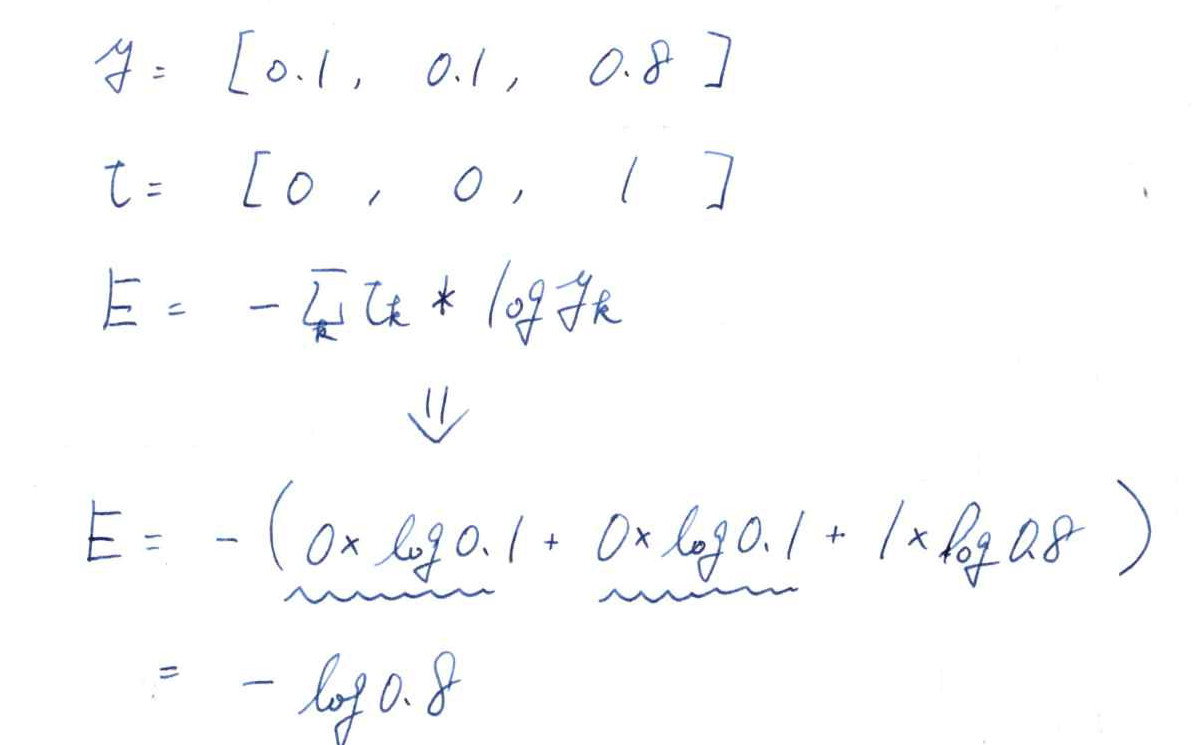 y = [0.1, 0.1, 0.8]
t = [0, 0, 1]
E = - Σ_k t_k * log y_k
⇓
E = - (0× log 0.1 + 0× log 0.1 + 1× log 0.8)
= - log 0.8